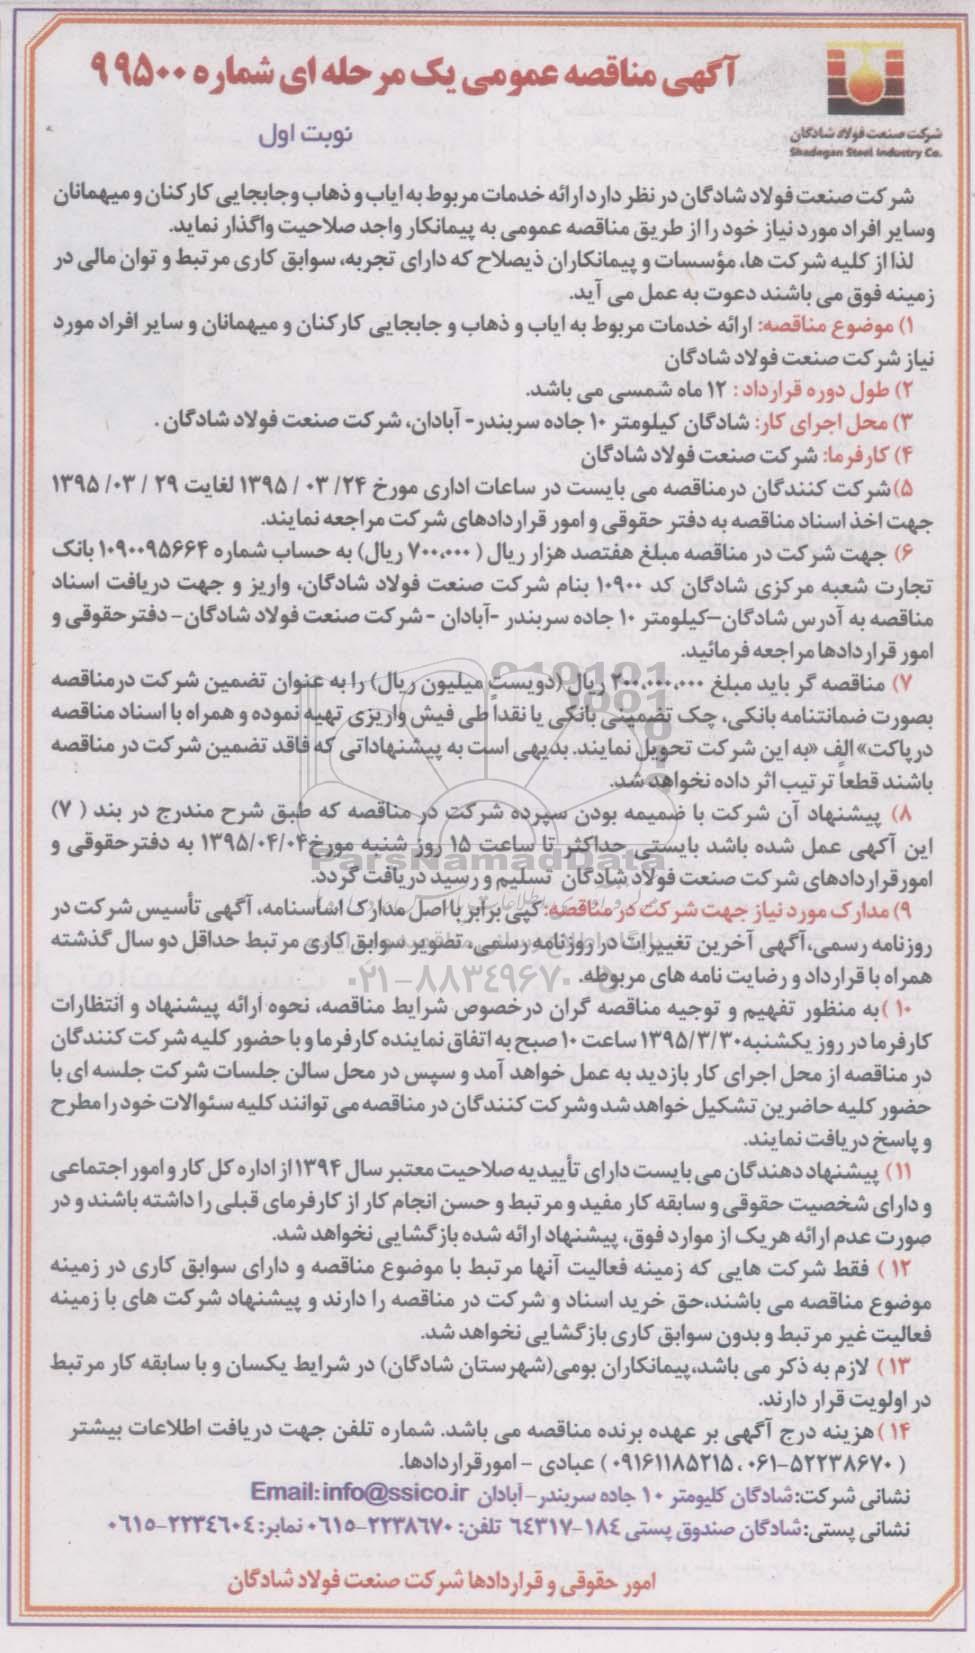 آگهی مناقصه عمومی یک مرحله ای شماره ۹۹۵۰۰
نوبت اول
شرکت صنعت فولاد شادگان
Shadegan Steel Industry Co.
شرکت صنعت فولاد شادگان در نظر دارد ارائه خدمات مربوط به ایاب و ذهاب وجابجایی کارکنان و میهمانان
وسایر افراد مورد نیاز خود را از طریق مناقصه عمومی به پیمانکار واجد صلاحیت واگذار نماید.
لذا از کلیه شرکت ها، مؤسسات و پیمانکاران ذیصلاح که دارای تجربه، سوابق کاری مرتبط و توان مالی در
زمینه فوق می باشند دعوت به عمل می آید.
۱) موضوع مناقصه: ارائه خدمات مربوط به ایاب و ذهاب و جابجایی کارکنان و میهمانان و سایر افراد مورد
نیاز شرکت صنعت فولاد شادگان
۲) طول دوره قرارداد : ۱۲ ماه شمسی می باشد.
۳) محل اجرای کار: شادگان کیلومتر ۱۰ جاده سربندر- آبادان، شرکت صنعت فولاد شادگان .
۴) کارفرما: شرکت صنعت فولاد شادگان
۵)شرکت کنندگان درمناقصه می بایست در ساعات اداری مورخ ۲۴/ ۰۳ / ۱۳۹۵ لغایت ۲۹ / ۰۳/ ۱۳۹۵
جهت اخذ اسناد مناقصه به دفتر حقوقی و امور قراردادهای شرکت مراجعه نمایند.
۶) جهت شرکت در مناقصه مبلغ هفتصد هزار ریال ( ۷۰۰،۰۰۰ ریال) به حساب شماره ۱۰۹۰۰۹۵۶۶۴ بانک
تجارت شعبه مرکزی شادگان کد ۱۰۹۰۰ بنام شرکت صنعت فولاد شادگان، واریز و جهت دریافت اسناد
مناقصه به آدرس شادگان–کیلومتر ۱۰ جاده سربندر -آبادان - شرکت صنعت فولاد شادگان- دفترحقوقی و
امور قراردادها مراجعه فرمائید.
۷) مناقصه گر باید مبلغ ۲۰۰،۰۰۰،۰۰۰ ریال (دویست میلیون ریال) را به عنوان تضمین شرکت درمناقصه
بصورت ضمانتنامه بانکی، چک تضمینی بانکی یا نقداً طی فیش واریزی تهیه نموده و همراه با اسناد مناقصه
درپاکت» الف «به این شرکت تحویل نمایند. بدیهی است به پیشنهاداتی که فاقد تضمین شرکت در مناقصه
باشند قطعاً ترتیب اثر داده نخواهد شد.
۸) پیشنهاد آن شرکت با ضمیمه بودن سپرده شرکت در مناقصه که طبق شرح مندرج در بند ( ۷)
این آگهی عمل شده باشد بایستی حداکثر تا ساعت ۱۵ روز شنبه مورخ۱۳۹۵/۰۴/۰۴ به دفترحقوقی و
امورقراردادهای شرکت صنعت فولاد شادگان تسلیم و رسید دریافت گردد.
۹) مدارک مورد نیاز جهت شرکت در مناقصه: کپی برابر با اصل مدارک اساسنامه، آگهی تأسیس شرکت در
روزنامه رسمی،آگهی آخرین تغییرات در روزنامه رسمی، تصویر سوابق کاری مرتبط حداقل دو سال گذشته
همراه با قرارداد و رضایت نامه های مربوطه.
۱۰ )به منظور تفهیم و توجیه مناقصه گران درخصوص شرایط مناقصه، نحوه ارائه پیشنهاد و انتظارات
کارفرما در روز یکشنبه۱۳۹۵/۳/۳۰ ساعت ۱۰ صبح به اتفاق نماینده کارفرما و با حضور کلیه شرکت کنندگان
در مناقصه از محل اجرای کار بازدید به عمل خواهد آمد و سپس در محل سالن جلسات شرکت جلسه ای با
حضور کلیه حاضرین تشکیل خواهد شد وشرکت کنندگان در مناقصه می توانند کلیه سئوالات خود را مطرح
و پاسخ دریافت نمایند.
۱۱) پیشنهاد دهندگان می بایست دارای تأییدیه صلاحیت معتبر سال ۱۳۹۴ از اداره کل کار و امور اجتماعی
و دارای شخصیت حقوقی و سابقه کار مفید و مرتبط و حسن انجام کار از کارفرمای قبلی را داشته باشند و در
صورت عدم ارائه هریک از موارد فوق، پیشنهاد ارائه شده بازگشایی نخواهد شد.
۱۲ ) فقط شرکت هایی که زمینه فعالیت آنها مرتبط با موضوع مناقصه و دارای سوابق کاری در زمینه
موضوع مناقصه می باشند،حق خرید اسناد و شرکت در مناقصه را دارند و پیشنهاد شرکت های با زمینه
فعالیت غیر مرتبط و بدون سوابق کاری بازگشایی نخواهد شد.
۱۳ ) لازم به ذکر می باشد،پیمانکاران بومی(شهرستان شادگان) در شرایط یکسان و با سابقه کار مرتبط
در اولویت قرار دارند.
۱۴ )هزینه درج آگهی بر عهده برنده مناقصه می باشد. شماره تلفن جهت دریافت اطلاعات بیشتر
( ۰۶۱-۵۲۲۳۸۶۷۰ ، ۰۹۱۶۱۱۸۵۲۱۵ ) عبادی - امورقراردادها.
نشانی شرکت:شادگان کلیومتر ۱۰ جاده سربندر- آبادان Email: info@ssico.ir
نشانی پستی:شادگان صندوق پستی ۱۸۴-۶۴۳۱۷ تلفن: ۲۲۳۸۶۷۰-۰۶۱۵ نمابر: ۲۲۳۴۶۰۴-۰۶۱۵
امور حقوقی و قراردادها شرکت صنعت فولاد شادگان
ParsNamadData
۰۲۱-۸۸۳۴۹۶۷۰-۵